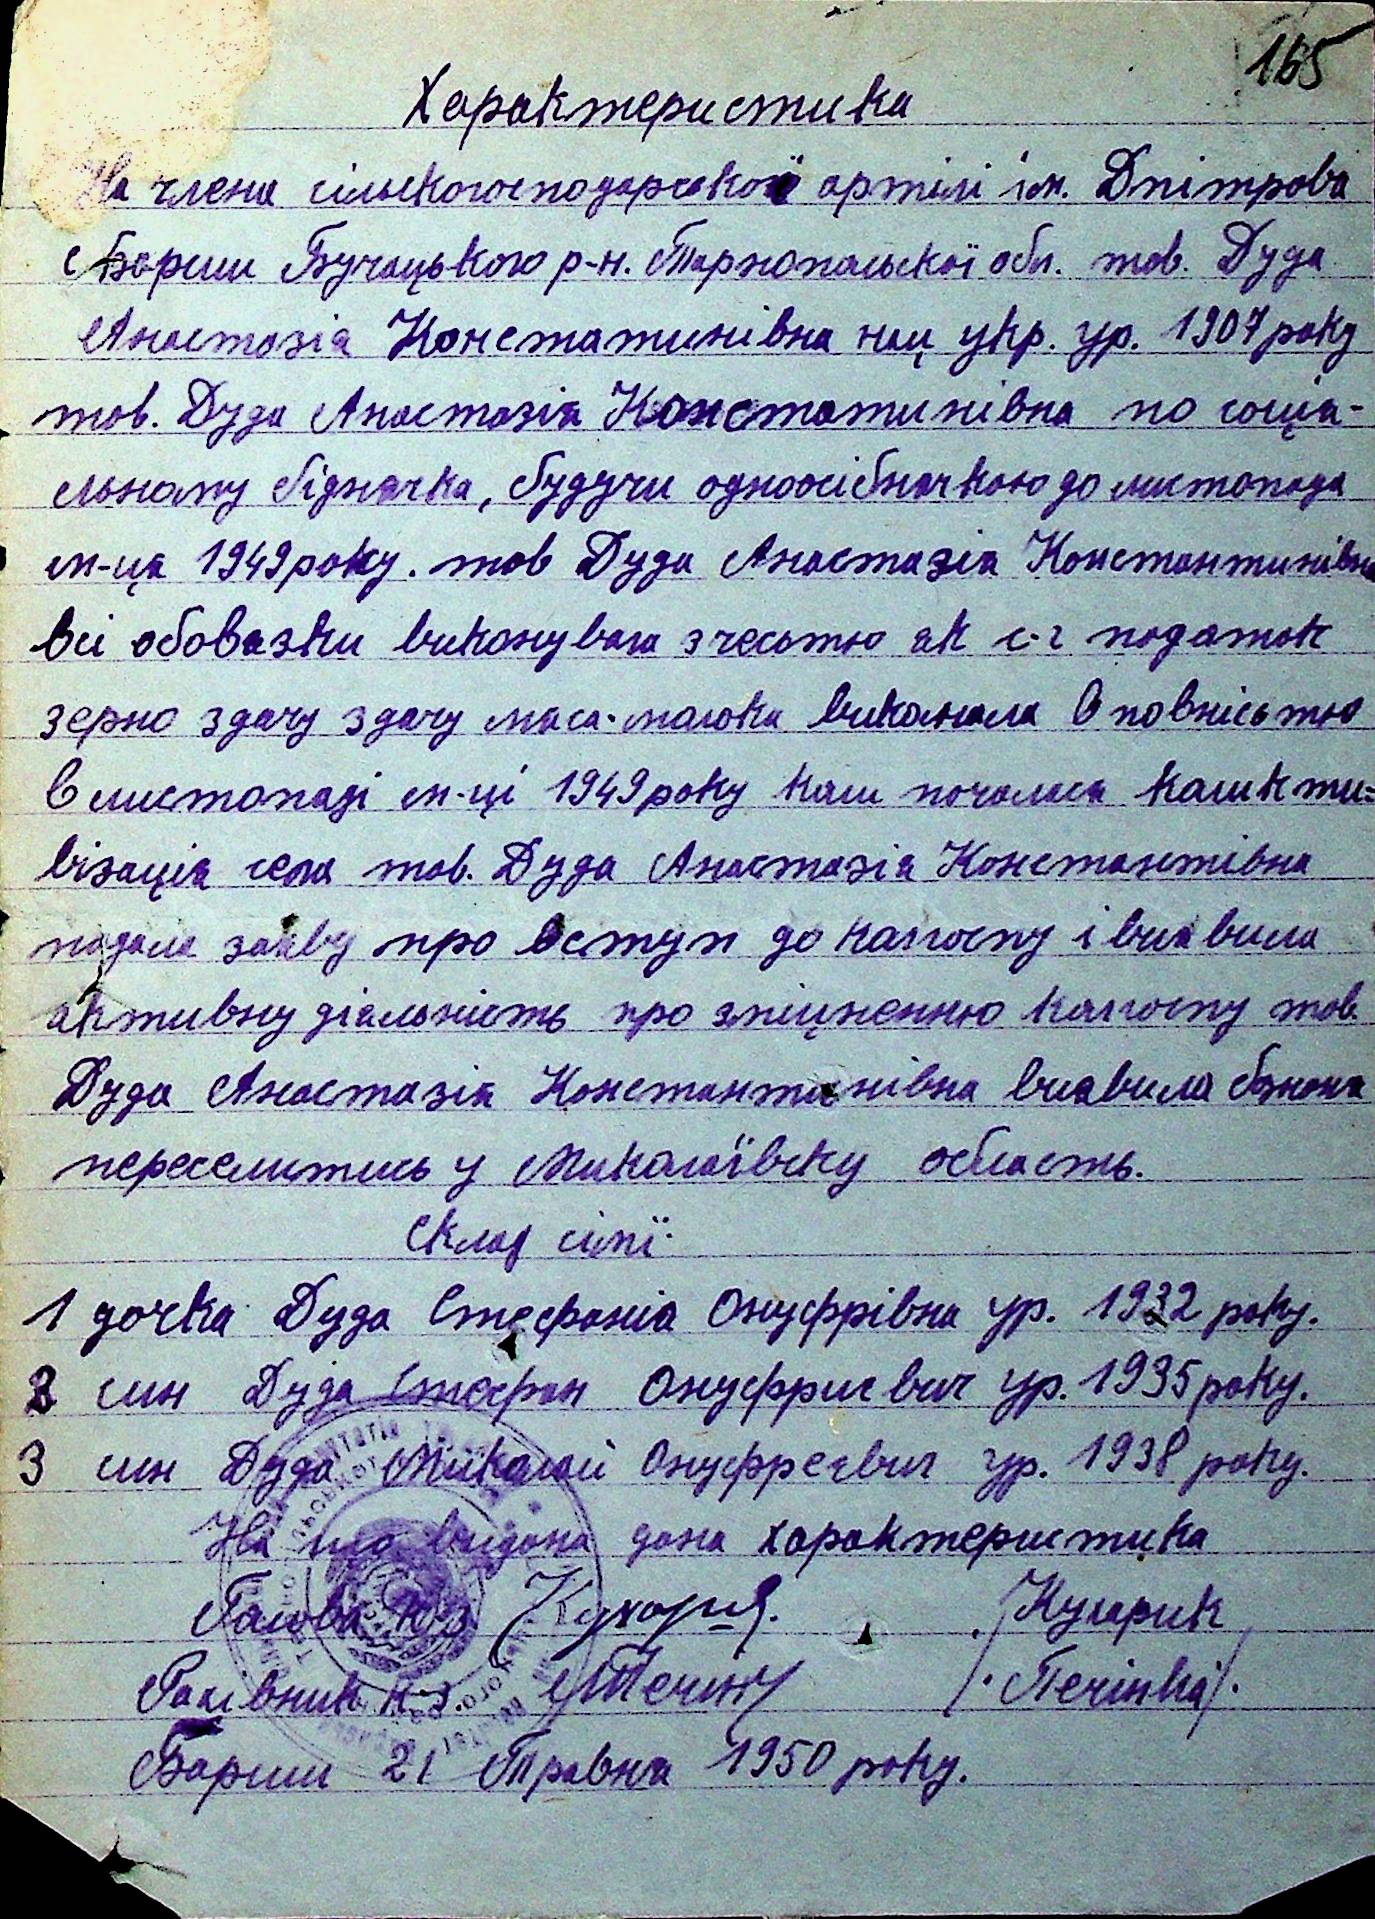 165
Характеристика
На члена сільскогосподарської артілі ім. Дпітрова
с Бариш Бучацького р-н. Тарнопольскої обл. тов. Дуда
Анастазія Констатинівна нац укр. ур. 1907 року
тов. Дуда Анастазія Констатинівна по соція-
льному біднячка, будучи одноосібначкою до листопада
м-ця 1949 року. тов Дуда Анастазія Константинівна
всі обовязки виконувала з честью як с-г податок
зерно здачу здачу мяса-молока виконала в повністью
в листопаді м-ці 1949 року коли почалася калікти-
візація села тов. Дуда Анастазія Константівна
подала заяву про вступ до калгоспу і виявила
активну діяльність про зміцненню калгоспу тов.
Дуда Анастазія Константинівна виявила бажана
переселитись у Миколаївску область.
Склад сімї
1 дочка Дуда Стефанія Онуфрівна ур. 1932 року.
2 син Дуда Стефан Онуфриевич ур. 1935 року.
3 син Дуда Миколай Онуфревич ур. 1938 року.
На що видана дана характеристика
Голова к-з. Кухарик
Рахівник к-з. Печінка
Бариш 21 Травня 1950 року.